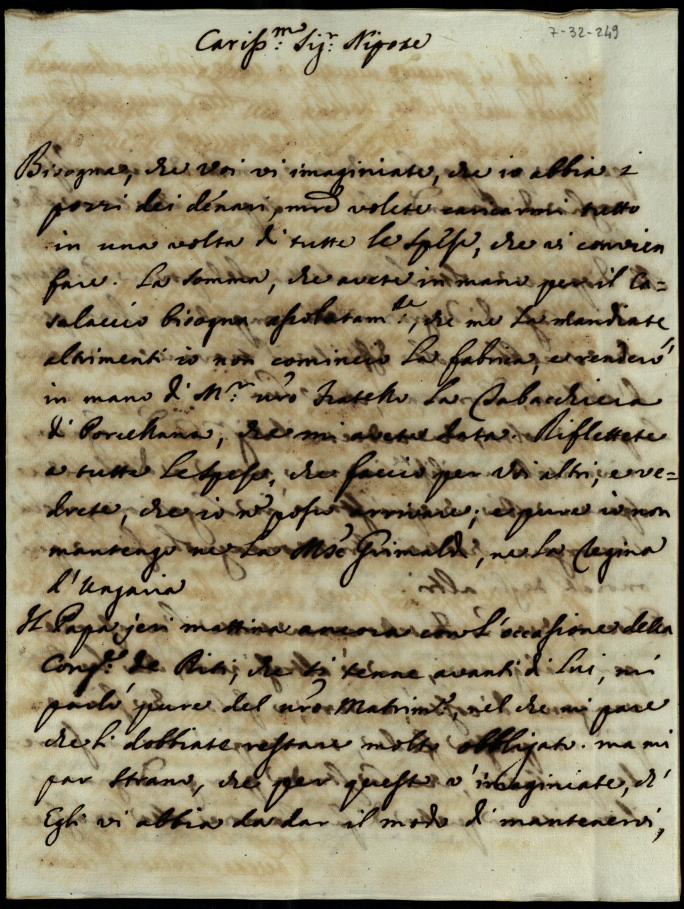 7-32-249
Cariss.mo Sig.r Nipote
Bisogna, che voi vi imaginiate, che io abbia i
pozzi dei denari, mentre volete caricarmi tutto
in una volta di tutte le spese, che vi convien
fare. La somma, che avete in mano per il Ca=
salaccio bisogna assolutam.te, che me la mandiate
altrimenti io non comincio la fabrica, e renderò
in mano di M.r vro fratello la Tabacchiera
di Porcellana, che mi avete data. Riflettete
a tutte le spese, che faccio per voi altri, e ve=
drete, che io nō posso arrivare; e pure io non
mantengo ne la Grimaldi, ne la Regina
d'Ungaria
Il Papa jeri mattina ancora con l'occasione della
Cong.e de Riti, che si tenne avanti di Lui, mi
parlò pure del vro Matrim.o, nel che mi pare
che li dobbiate restare molto obbligato. ma mi
par strano, che per questo v'imaginiate, ch'
Egli vi abbia da dar il modo di mantenervi,